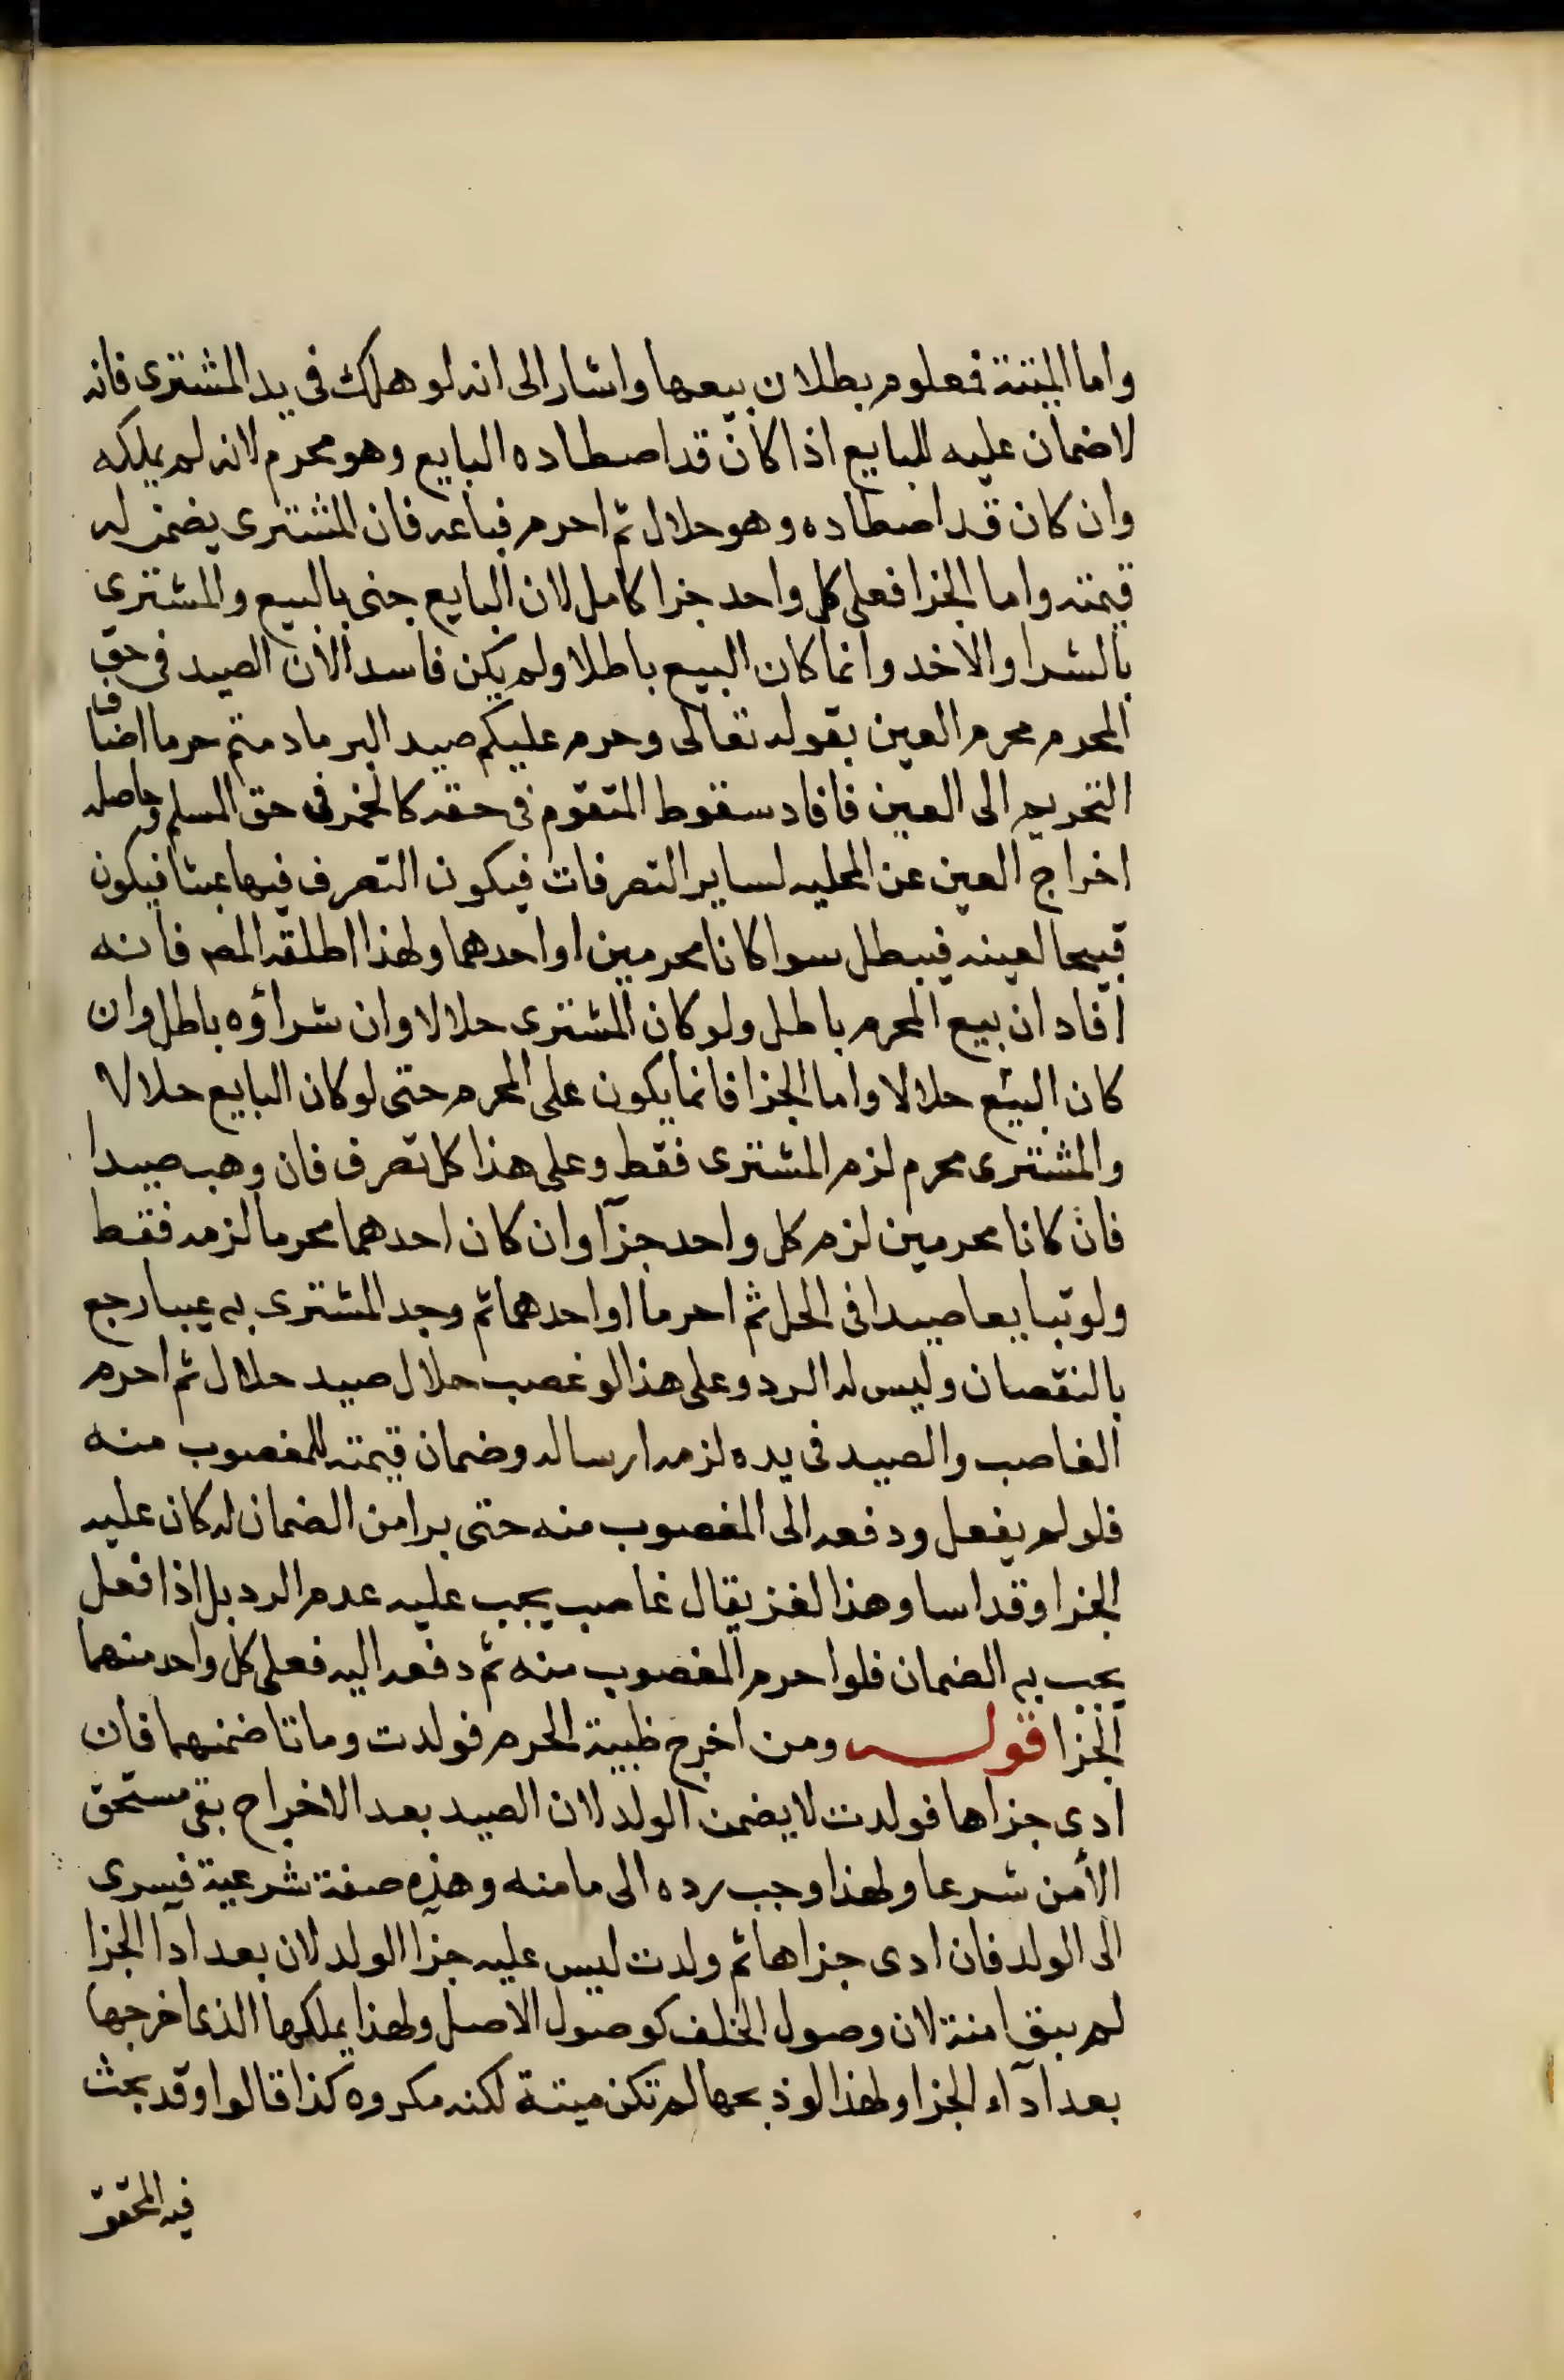 واما الميتة فمعلوم بطلان بيعها واشار الى انه لو هلك فى يد المشترى فانه
لاضمان عليه للبايع اذا كان قد اصطاده البايع وهو محرم لانه لم يملكه
وان كان قد اصطاده وهو حلال ثم احرم فباعه فان المشترى يضمن له
قيمته واما الجزا فعلى كل واحد جزا كامل لان البايع جنى بالبيع والمشترى
بالشرا والاخد وانما كان البيع باطلا ولم يكن فاسدا لان الصيد فى حق
المحرم محرم العين بقوله تعالى وحرم عليكم صيد البر مادمتم حرما اضاف
التحريم الى العين فافاد سقوط التقوم فى حقه كالخمر فى حق المسلم وحاصله
اخراج العين عن المحليه لساير التصرفات فيكون التصرف فيها عبثا فيكون
قبيحا لعينه فيبطل سوا كانا محرمين او احدهما ولهذا اطلقه المص فانه
افاد ان بيع المحرم باطل ولو كان المشترى حلالا وان شراؤه باطل وان
كان البيع حلالا واما الجزا فانما يكون على المحرم حتى لو كان البايع حلالا
والمشترى محرم لزم المشترى فقط وعلى هذا كل تصرف فان وهب صيدا
فان كانا محرمين لزم كل واحد جزآ وان كان احدهما محرما لزمه فقط
ولو تبايعا صيدا فى الحل ثم احرما او احدهما ثم وجد المشترى به عيبا رجع
بالنقصان وليس له الرد وعلى هذا لو غصب حلال صيد حلال ثم احرم
الغاصب والصيد فى يده لزمه ارساله وضمان قيمته للمغصوب منه
فلو لم يفعل ودفعه الى المغصوب منه حتى برا من الضمان له كان عليه
الجزا وقد اسا وهذا لغز يقال غاصب يجب عليه عدم الرد بل اذا فعل
يجب به الضمان فلو احرم المغصوب منه ثم دفعه اليه فعلى كل واحد منهما
الجزا قوله ومن اخرج ظبية الحرم فولدت وماتا ضمنهما فان
ادى جزاها فولدت لا يضمن الولد لان الصيد بعد الاخراج بقى مستحق
الأمن شرعا ولهذا وجب رده الى مامنه وهذه صفة شرعية فيسرى
الى الولد فان ادى جزاها ثم ولدت ليس عليه جزا الولد لان بعد ادا الجزا
لم يبق امنة لان وصول الخلف كوصول الاصل ولهذا يملكها الذى اخرجها
بعد آداء الجزا ولهذا لو ذبحها لم تكن ميتة لكنه مكروه كذا قالوا وقد بحث
فيه المحقق